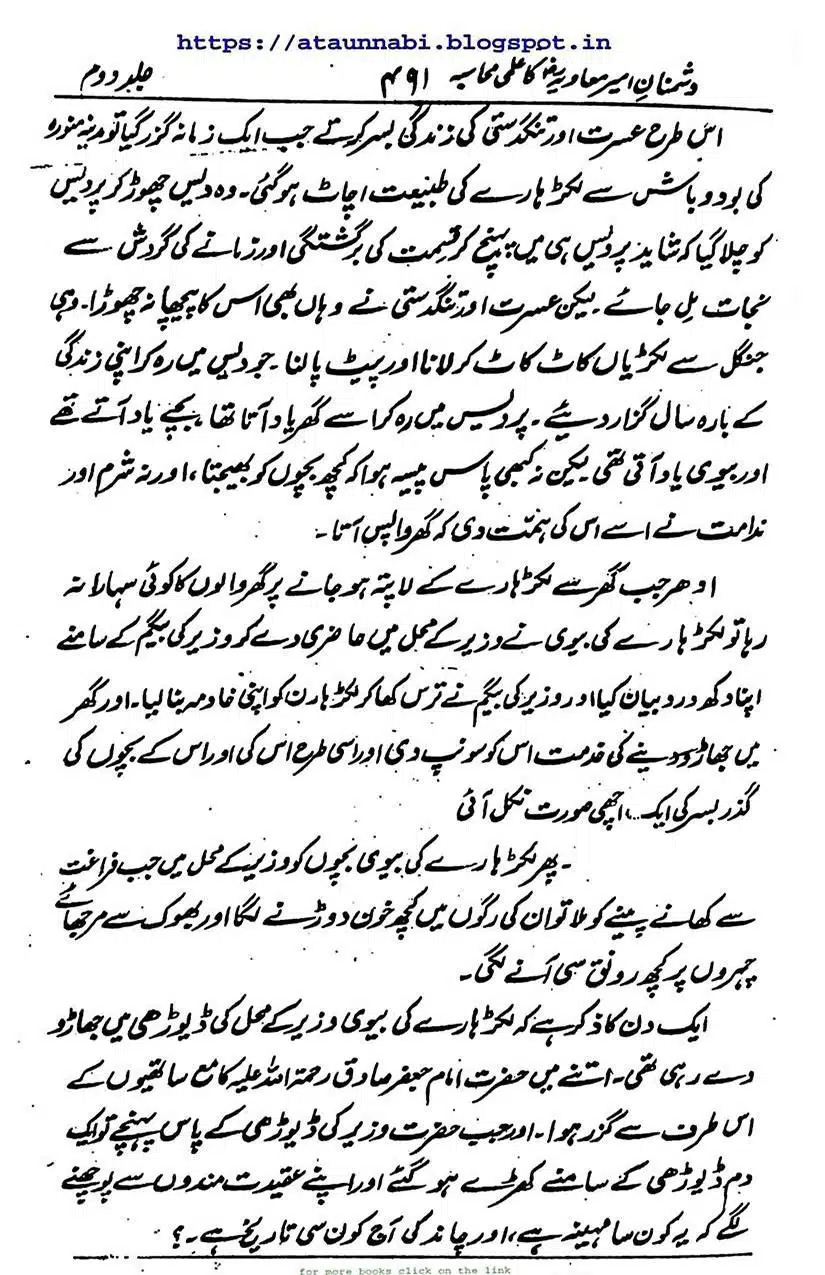 https://ataunnabi.blogspot.in
دشمنانِ امیر معاویہؓ کا علمی محاسبہ ۴۹۱ جلد دوم
اس طرح عسرت اور تنگدستی کی زندگی بسر کرتے جب ایک زمانہ گزر گیا تو مدینہ منورہ
کی بود و باش سے لکڑہارے کی طبیعت اچاٹ ہو گئی۔ وہ دیس چھوڑ کر پردیس
کو چلا گیا کہ شاید پردیس ہی میں پہنچ کر قسمت کی برگشتگی اور زمانے کی گردش سے
نجات مِل جائے۔ لیکن عسرت اور تنگدستی نے وہاں بھی اس کا پیچھا نہ چھوڑا۔ وہی
جنگل سے لکڑیاں کاٹ کاٹ کر لانا اور پیٹ پالنا۔ جو دیس میں رہ کر اپنی زندگی
کے بارہ سال گزار دیئے۔ پردیس میں رہ کر اسے گھر یاد آتا تھا، بچے یاد آتے تھے
اور بیوی یاد آتی تھی۔ لیکن نہ کبھی پاس پیسہ ہوا کہ کچھ بچوں کو بھیجتا، اور نہ شرم اور
ندامت نے اسے اس کی ہمّت دی کہ گھر واپس آتا۔
ادھر جب گھر سے لکڑہارے کے لاپتہ ہو جانے پر گھر والوں کا کوئی سہارا نہ
رہا تو لکڑہارے کی بیوی نے وزیر کے محل میں حاضری دے کر وزیر کی بیگم کے سامنے
اپنا دکھ درد بیان کیا اور وزیر کی بیگم نے ترس کھا کر لکڑہارن کو اپنی خادمہ بنا لیا۔ اور گھر
میں جھاڑو دینے کی خدمت اس کو سونپ دی اور اسی طرح اس کی اور اس کے بچوں کی
گذر بسر کی ایک اچھی صورت نکل آئی
۔ پھر لکڑہارے کی بیوی بچوں کو وزیر کے محل میں جب فراغت
سے کھانے پینے کو ملا تو ان کی رگوں میں کچھ خون دوڑنے لگا اور بھوک سے مرجھائے
چہروں پر کچھ رونق سی آنے لگی۔
ایک دن کا ذکر ہے کہ لکڑہارے کی بیوی وزیر کے محل کی ڈیوڑھی میں جھاڑو
دے رہی تھی۔ اتنے میں حضرت امام جعفر صادق رحمتہ اللہ علیہ کا مع ساتھیوں کے
اس طرف سے گزر ہوا۔ اور جب حضرت وزیر کی ڈیوڑھی کے پاس پہنچے تو ایک
دم ڈیوڑھی کے سامنے کھڑے ہو گئے اور اپنے عقیدت مندوں سے پوچھنے
لگے کہ یہ کون سا مہینہ ہے، اور چاند کی آج کون سی تاریخ ہے۔؟
for more books click on the link